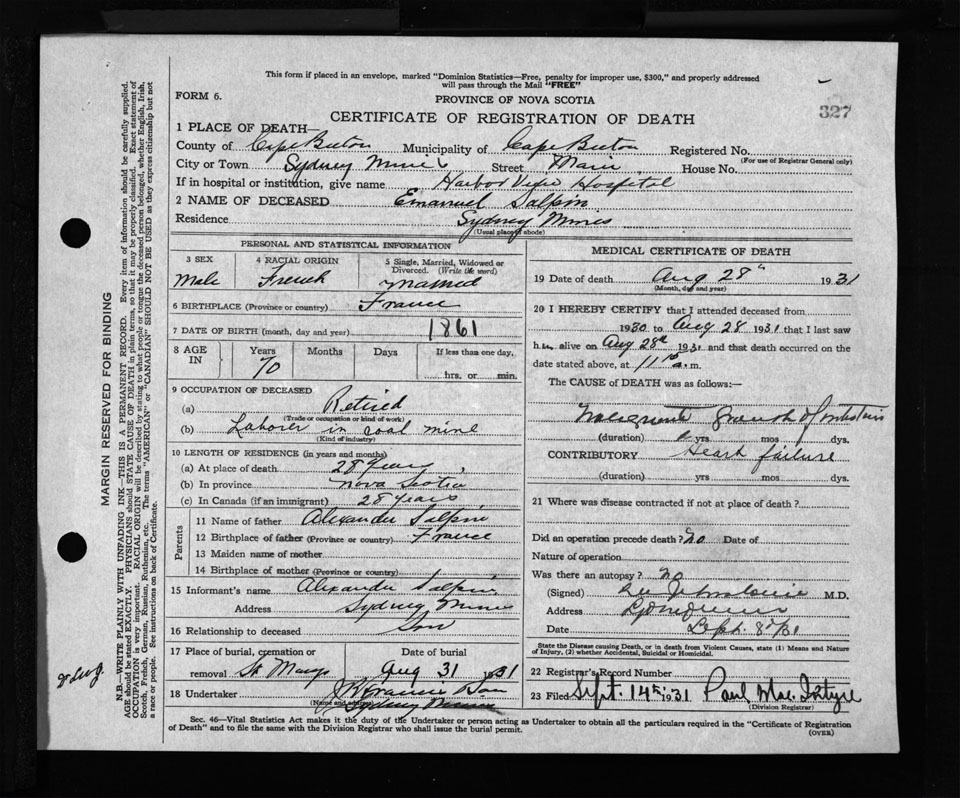 This form if placed in an envelope, marked "Dominion Statistics—Free, penalty for improper use, $300," and properly addressed
will pass through the Mail "FREE"
FORM 6.
PROVINCE OF NOVA SCOTIA
327
CERTIFICATE OF REGISTRATION OF DEATH
1 PLACE OF DEATH—
County of Cape Breton Municipality of Cape Breton Registered No.
(For use of Registrar General only)
City or Town Sydney Mines Street Main House No.
If in hospital or institution, give name Harbor View Hospital
2 NAME OF DECEASED Emanuel Salpin
Residence Sydney Mines
(Usual place of abode)
PERSONAL AND STATISTICAL INFORMATION
3 SEX 4 RACIAL ORIGIN 5 Single, Married, Widowed or Divorced. (Write the word)
Male French Married
6 BIRTHPLACE (Province or country) France
7 DATE OF BIRTH (month, day and year) 1861
8 AGE IN Years Months Days If less than one day,
70 hrs. or min.
9 OCCUPATION OF DECEASED
(a) Retired
(Trade or occupation or kind of work)
(b) Laborer in coal mine
(Kind of industry)
10 LENGTH OF RESIDENCE (in years and months)
(a) At place of death 28 years
(b) In province Nova Scotia
(c) In Canada (if an immigrant) 28 years
Parents
11 Name of father Alexander Salpin
12 Birthplace of father (Province or country) France
13 Maiden name of mother
14 Birthplace of mother (Province or country)
15 Informant's name Alexander Salpin
Address Sydney Mines
16 Relationship to deceased Son
17 Place of burial, cremation or removal Date of burial
St Marys Aug 31 1931
18 Undertaker Son
(Name and address) Sydney Mines
MEDICAL CERTIFICATE OF DEATH
19 Date of death Aug 28th 1931
(Month, day and year)
20 I HEREBY CERTIFY that I attended deceased from
1930 to Aug 28 1931 that I last saw
him alive on Aug 28th 1931 and that death occurred on the
date stated above, at 11 a.m.
The CAUSE of DEATH was as follows:—
Malignant growth of
(duration) yrs. mos. dys.
CONTRIBUTORY Heart failure
(duration) yrs. mos. dys.
21 Where was disease contracted if not at place of death?
Did an operation precede death? No Date of
Nature of operation
Was there an autopsy? No
(Signed) M.D.
Address Sydney Mines
Date Sept. 8th/31
State the Disease causing Death, or in death from Violent Causes, state (1) Means and Nature of Injury, (2) whether Accidental, Suicidal or Homicidal.
22 Registrar's Record Number
23 Filed Sept. 14th 1931 Paul Mac Intyre
(Division Registrar)
Sec. 46—Vital Statistics Act makes it the duty of the Undertaker or person acting as Undertaker to obtain all the particulars required in the "Certificate of Registration
of Death" and to file the same with the Division Registrar who shall issue the burial permit. (OVER)
MARGIN RESERVED FOR BINDING
N.B.—WRITE PLAINLY WITH UNFADING INK—THIS IS A PERMANENT RECORD. Every item of information should be carefully supplied.
AGE should be stated EXACTLY. PHYSICIANS should STATE CAUSE OF DEATH in plain terms, so that it may be properly classified. Exact statement of
OCCUPATION is very important. RACIAL ORIGIN will be described by stating to what people or tongue the deceased person belonged, whether English, Irish,
Scotch, French, German, Russian, Ruthenian, etc. The terms "AMERICAN" or "CANADIAN" SHOULD NOT BE USED as they express citizenship but not
a race or people. See instructions on back of Certificate.